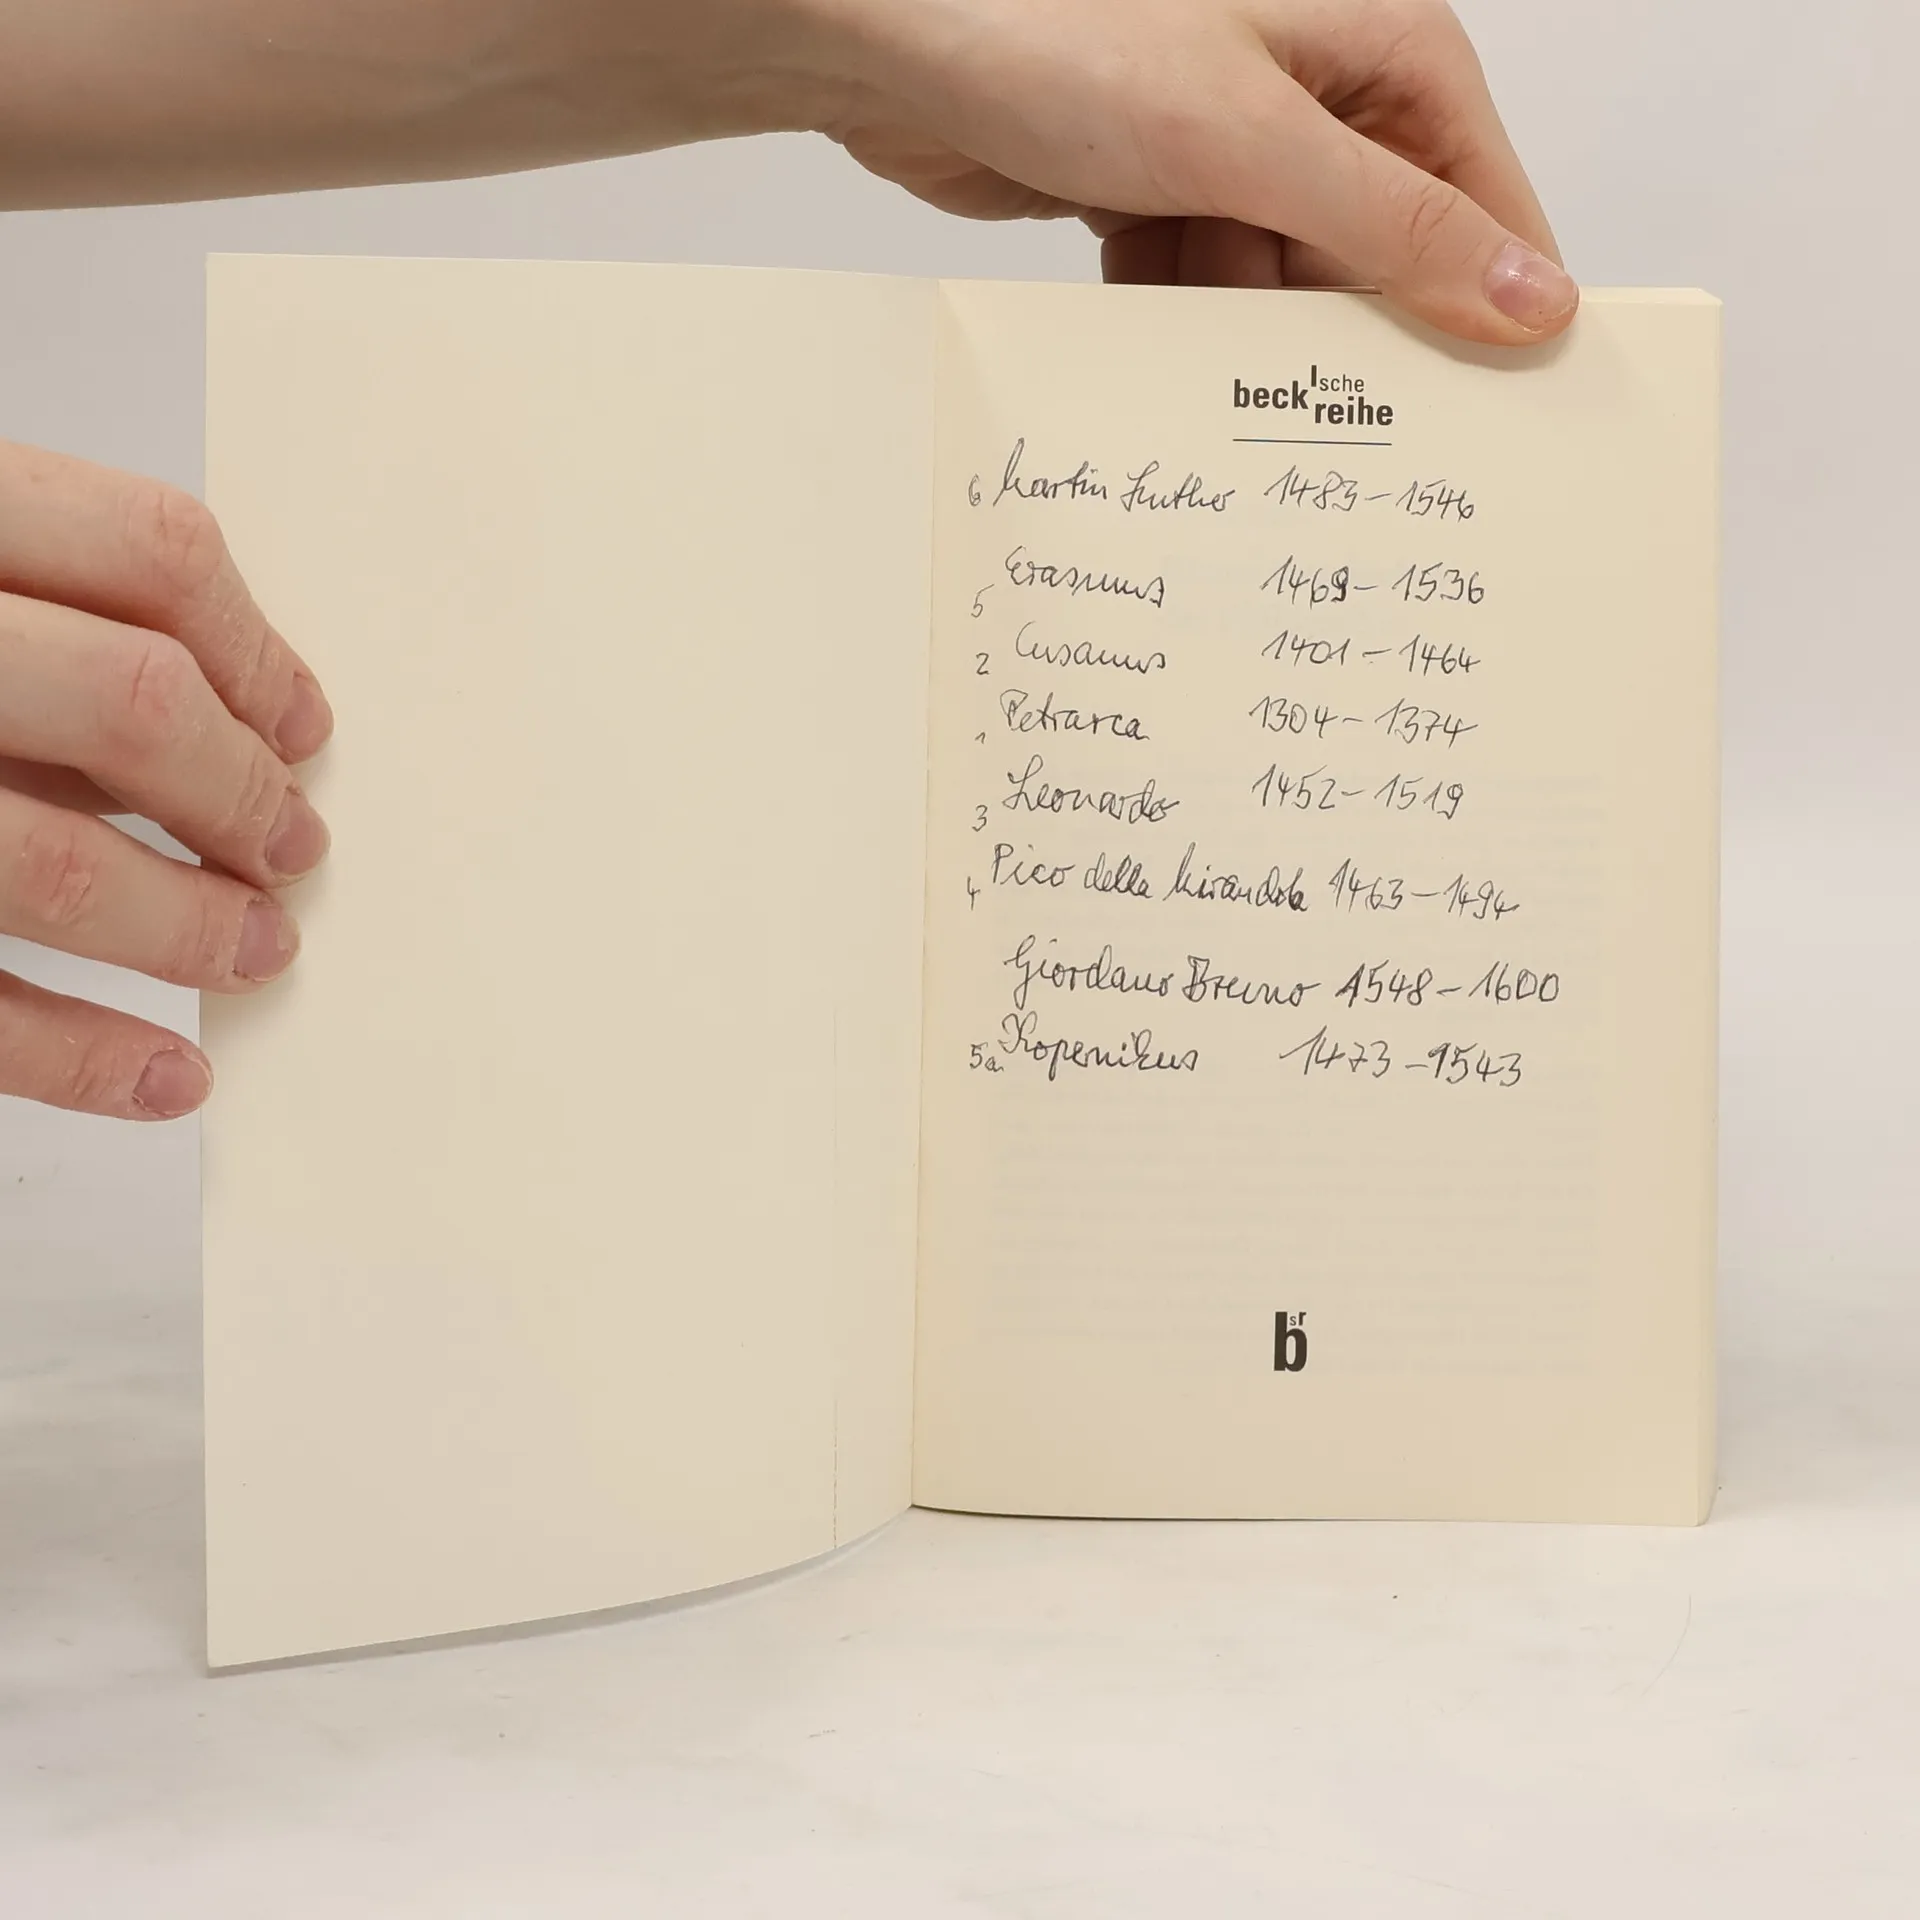 beck'sche
reihe
6 Martin Luther 1483 – 1546
5 Erasmus 1469 – 1536
2 Cusanus 1401 – 1464
1 Petrarca 1304 – 1374
3 Leonardo 1452 – 1519
4 Pico della Mirandola 1463 – 1494
Giordano Bruno 1548 – 1600
5a Kopernikus 1473 – 1543
bsr